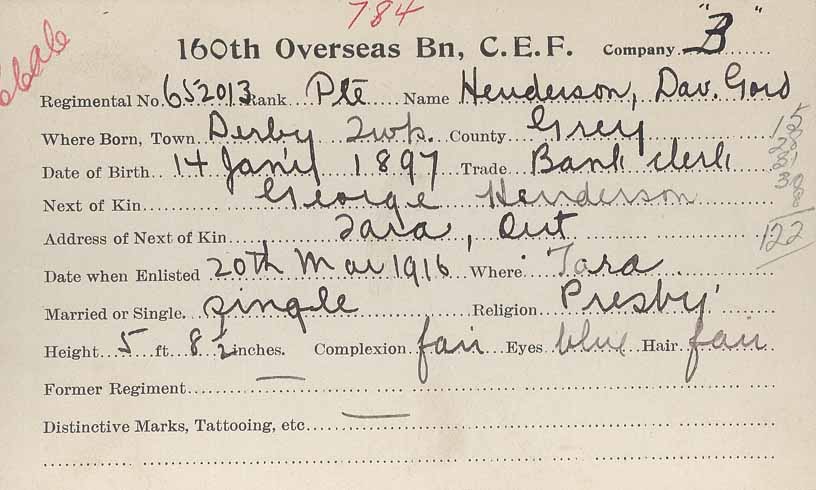 784
160th Overseas Bn, C.E.F. Company "B"
Regimental No. 652013 Rank Pte Name Henderson, Dav. Gord
Where Born, Town Derby Twp. County Grey
Date of Birth 14 Jan'y 1897 Trade Bank clerk
Next of Kin George Henderson
Address of Next of Kin Tara, Ont
122
Date when Enlisted 20th Mar 1916 Where Tara
Married or Single. single Religion Presby'
Height 5 ft. 8 1/2 inches. Complexion fair Eyes blue Hair fair
Former Regiment —
Distinctive Marks, Tattooing, etc —